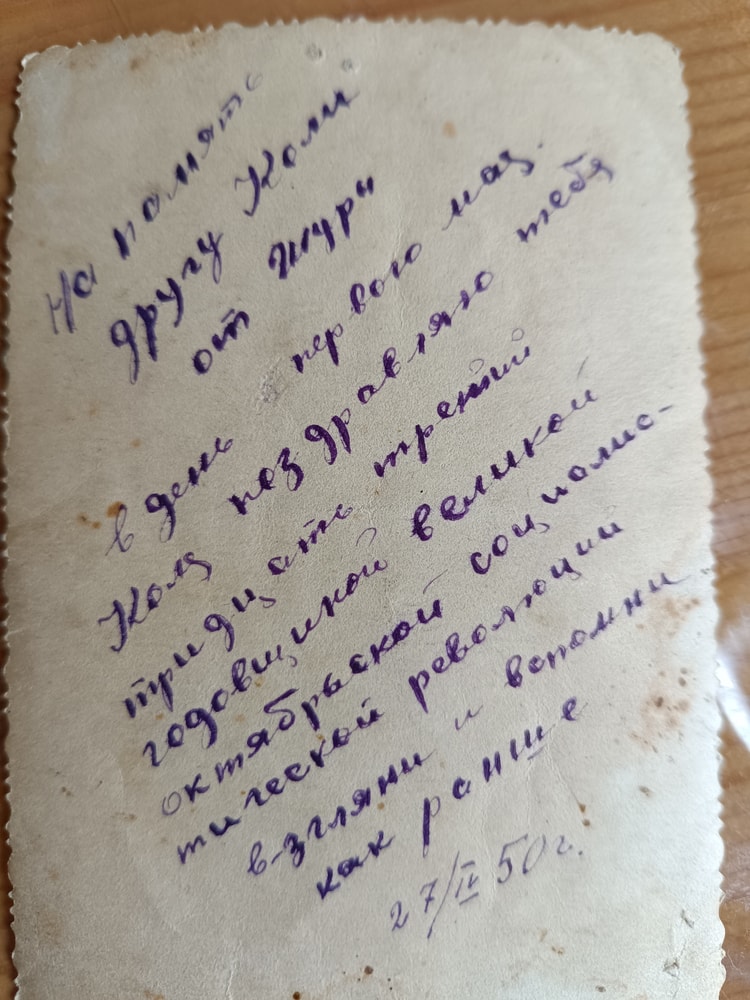 На память
другу Коли
от Шуры
в день первого мая.
Коля поздравляю тебя
тридцать третий
годовщиной великой
октябрьской социалис-
тической революции
взгляни и вспомни
как ранше
27/IV 50 г.